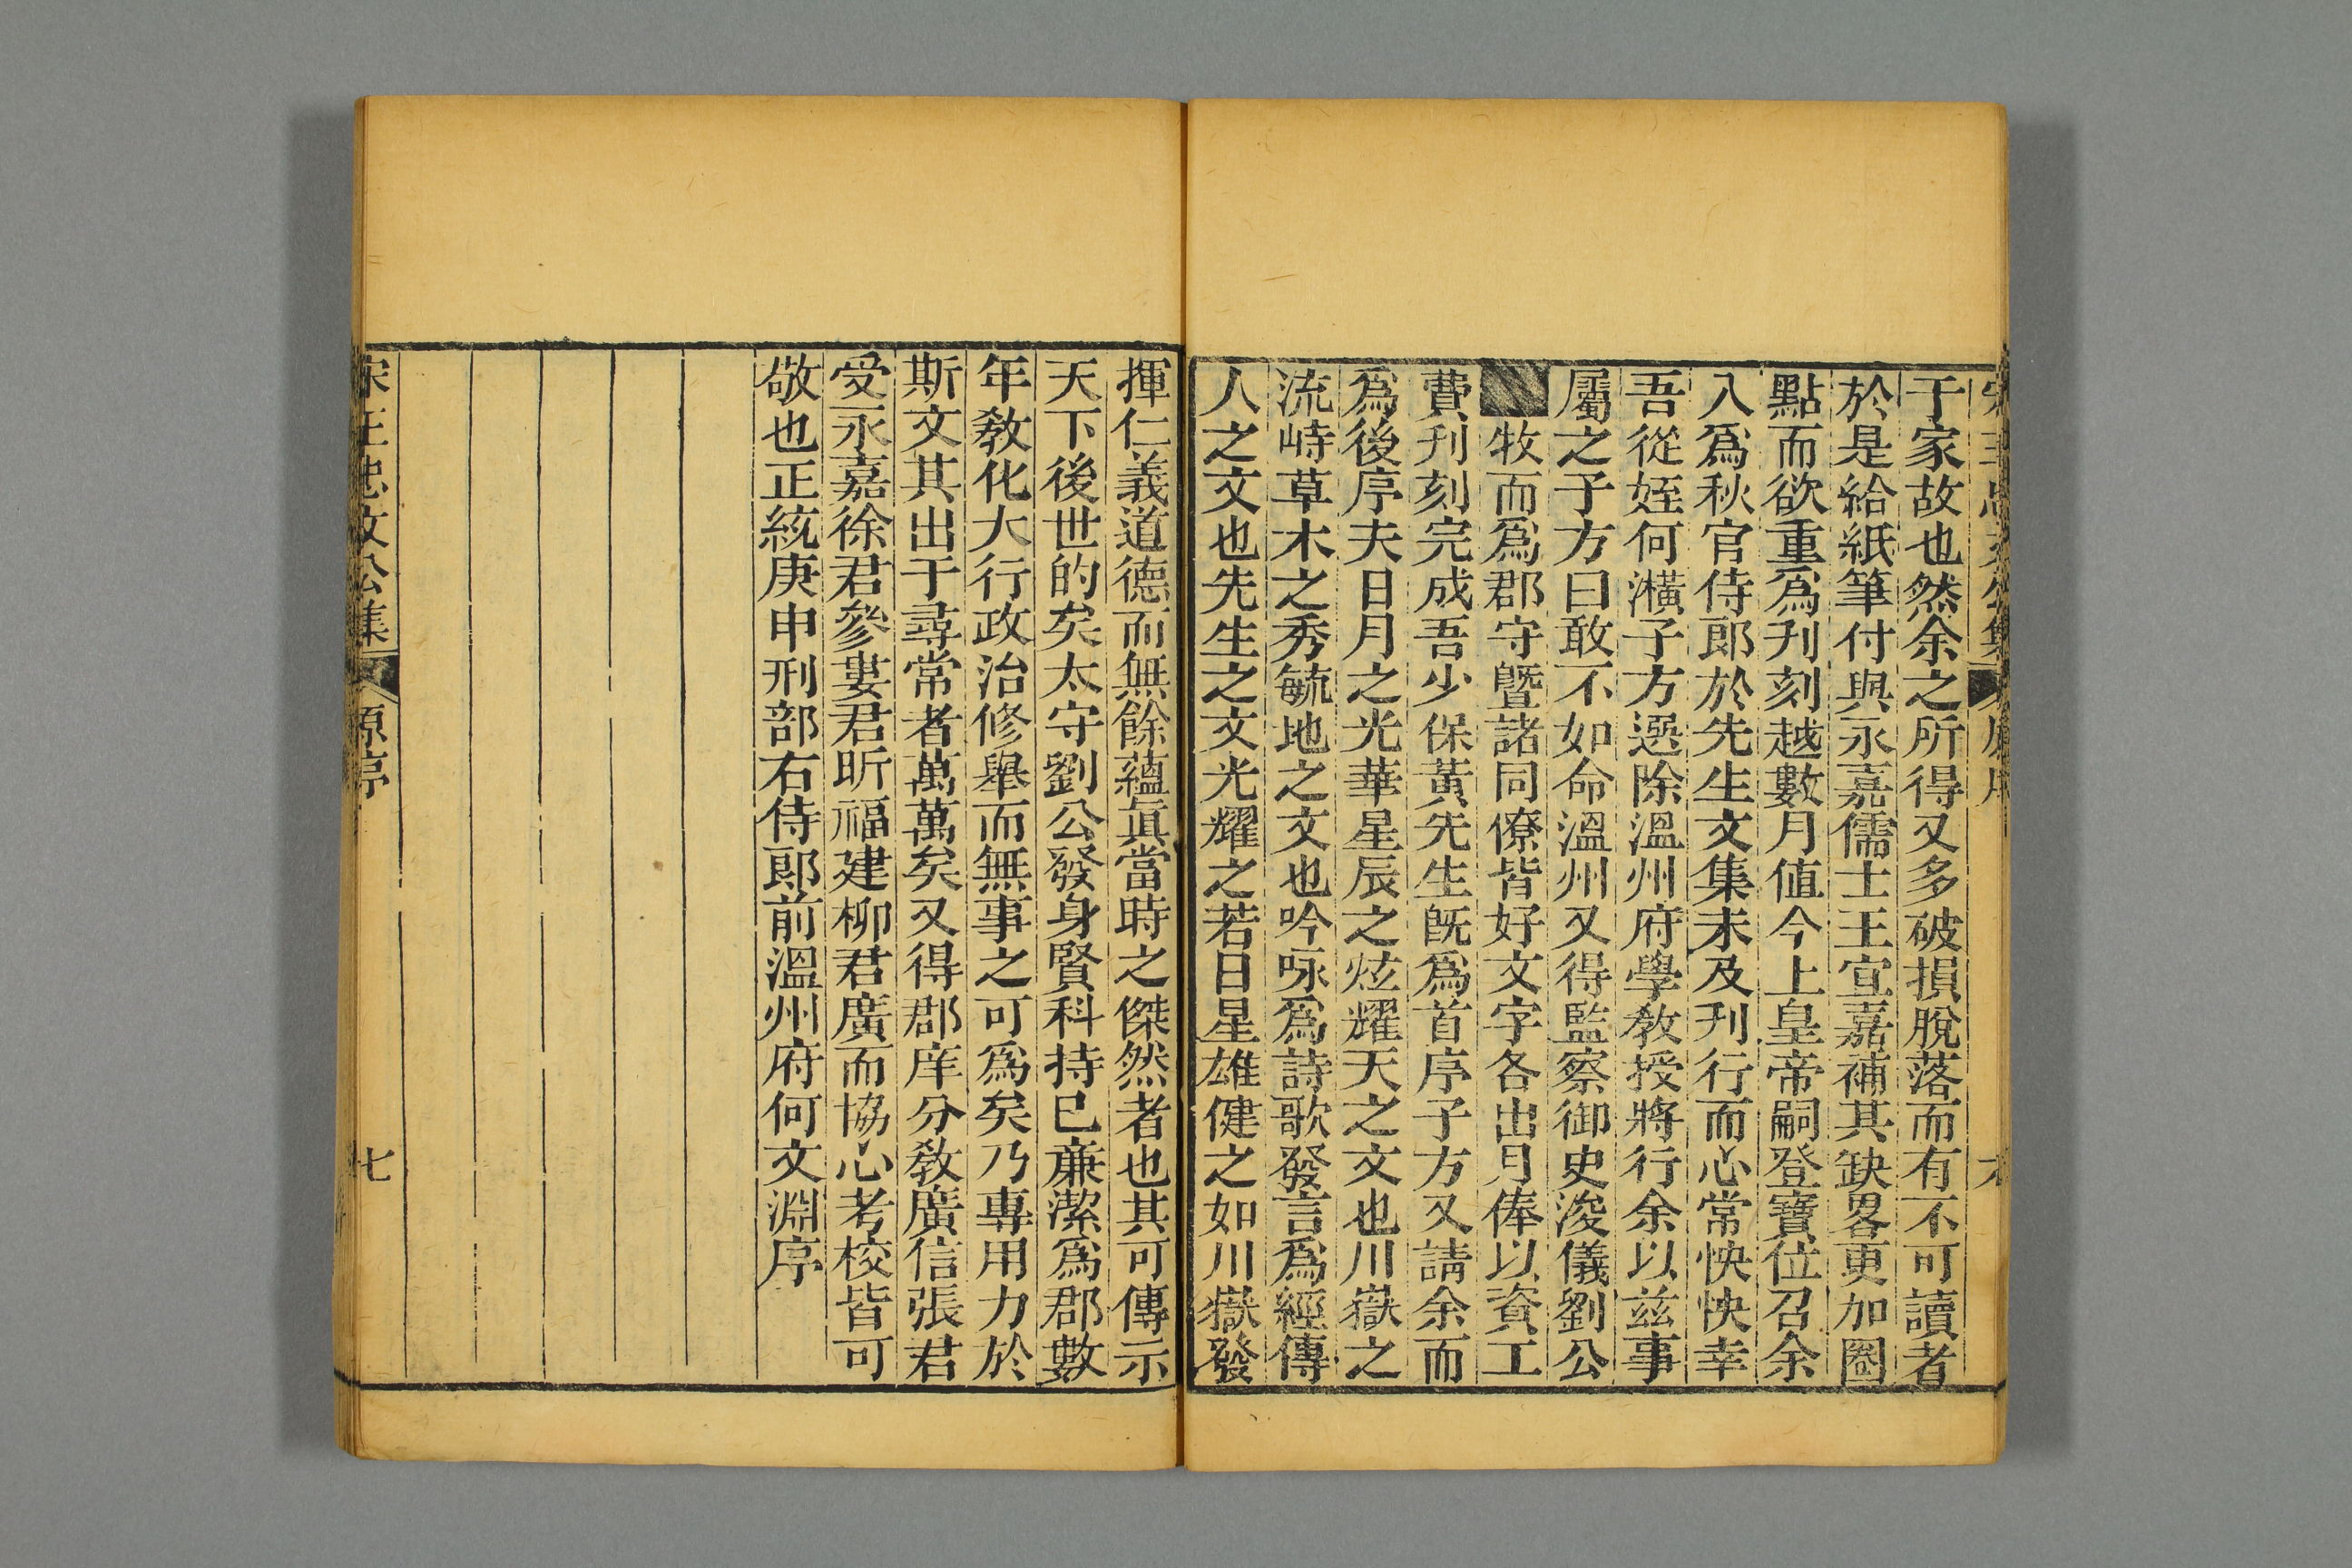 宋王忠文公集 原序 六
于家故也然余之所得又多破損脫落而有不可讀者
於是給紙筆付與永嘉儒士王宣嘉補其缺畧更加圈
點而欲重爲刋刻越數月値今上皇帝嗣登寶位召余
入爲秋官侍郎於先生文集未及刋行而心常怏怏幸
吾從姪何瀇子方選除溫州府學敎授將行余以兹事
屬之子方曰敢不如命溫州又得監察御史浚儀劉公
牧而爲郡守曁諸同僚皆好文字各出月俸以資工
費刋刻完成吾少保黃先生旣爲首序子方又請余而
爲後序夫日月之光華星辰之炫耀天之文也川嶽之
流峙草木之秀毓地之文也吟咏爲詩歌發言爲經傳
人之文也先生之文光耀之若日星雄健之如川嶽發
揮仁義道德而無餘蘊眞當時之傑然者也其可傳示
天下後世的矣太守劉公發身賢科持已亷潔爲郡數
年敎化大行政治修舉而無事之可爲矣乃專用力於
斯文其出于尋常者萬萬矣又得郡庠分敎廣信張君
受永嘉徐君參婁君昕福建柳君廣而協心考校皆可
敬也正統庚申刑部右侍郎前溫州府何文淵序
宋王忠文公集 原序 七